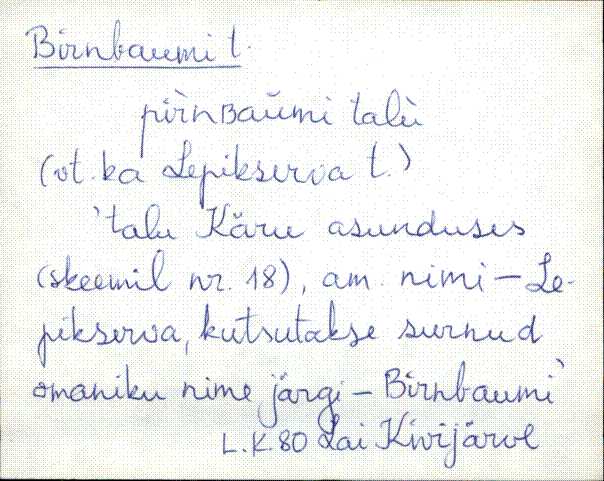 Birnbaumi t.
pìrnʙaŭmi talù
(vt. ka Lepikserva t.)
'talu Käru asunduses
(skeemil nr. 18), am. nimi – Le-
pikserva, kutsutakse surnud
omaniku nime järgi – Birnbaumi'
L.K.80 Lai Kivijärve